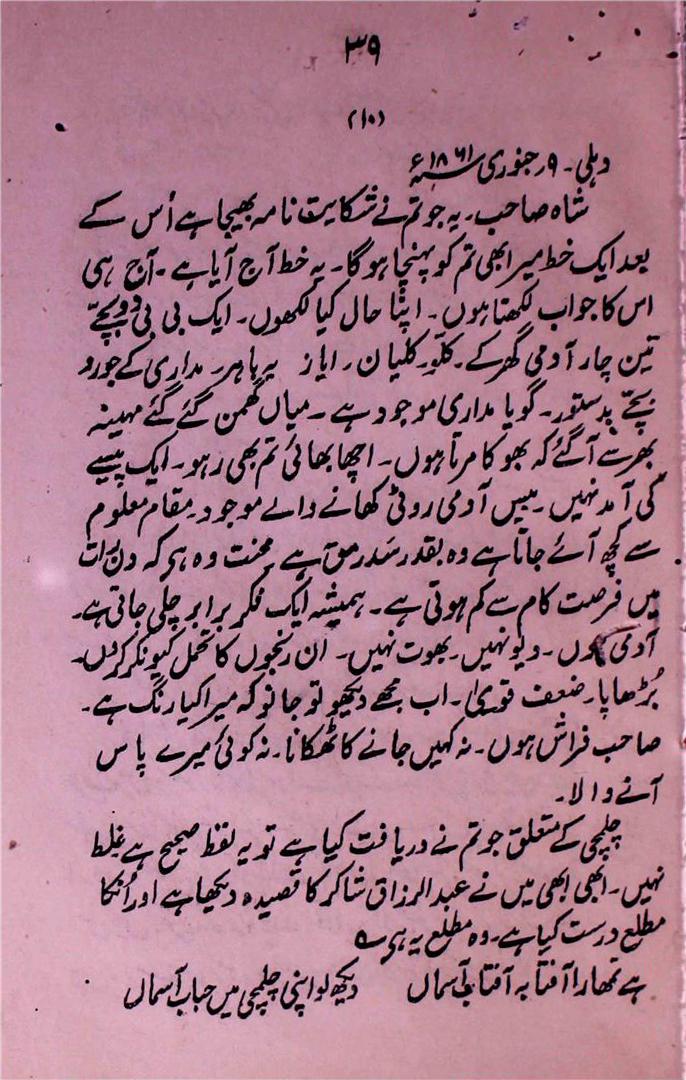 ۳۹
(۱۰)
دہلی۔ ۹ر جنوری ۱۸۶۱ء
شاہ صاحب۔ یہ جو تم نے شکایت نامہ بھیجا ہے اُس کے
بعد ایک خط میرا بھی تم کو پہنچا ہوگا۔ یہ خط آج آیا ہے۔ آج ہی
اس کا جواب لکھتا ہوں۔ اپنا حال کیا لکھوں۔ ایک بی بی دو بچّے
تین چار آدمی گھر کے۔ کلّو۔ کلیان۔ ایاز یہ باہر۔ مداری کے جورو
بچّے بدستور۔ گویا مداری موجود ہے۔ میاں گھمن گئے گئے مہینہ
بھر سے آگئے کہ بھوکا مرتا ہوں۔ اچھا بھائی تم بھی رہو۔ ایک پیسے
کی آمد نہیں۔ بیس آدمی روٹی کھانے والے موجود۔ مقام معلوم
سے کچھ آئے جاتا ہے وہ بقدر سدرمق ہے۔ محنت وہ ہی کہ دن رات
میں فرصت کام سے کم ہوتی ہے۔ ہمیشہ ایک فکر برابر چلی جاتی ہے۔
آدمی ہوں۔ دیو نہیں۔ بھوت نہیں۔ ان رنجوں کا تحمل کیونکر کروں۔
بُڑھاپا۔ ضعف قویٰ۔ اب مجھے دیکھو تو جانو کہ میرا کیا رنگ ہے۔
صاحب فراش ہوں۔ نہ کہیں جانے کا ٹھکانا۔ نہ کوئی میرے پاس
آنے والا۔
چلمچی کے متعلق جو تم نے دریافت کیا ہے تو یہ لفظ صحیح ہے غلط
نہیں۔ ابھی ابھی میں نے عبدالرزاق شاکر کا قصیدہ دیکھا ہے اور اُنکا
مطلع درست کیا ہے۔ وہ مطلع یہ ہی ؎
ہے تمھارا آفتابہ آفتاب آسماں دیکھ لو اپنی چلمچی میں حباب آسماں